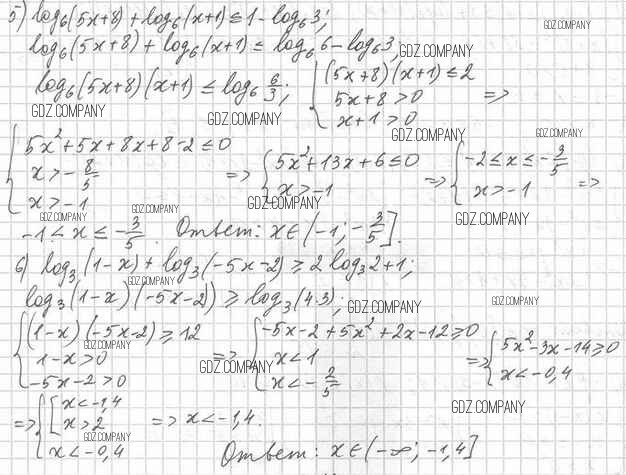 5) log₆(5x+8) + log₆(x+1) ≤ 1 - log₆3;
GDZ.COMPANY
log₆(5x+8) + log₆(x+1) ≤ log₆6 - log₆3,
GDZ.COMPANY
log₆(5x+8)(x+1) ≤ log₆ 6/3; { (5x+8)(x+1) ≤ 2
5x+8 > 0 =>
x+1 > 0
GDZ.COMPANY GDZ.COMPANY GDZ.COMPANY GDZ.COMPANY
{ 5x²+5x+8x+8-2 ≤ 0
x > -8/5
x > -1
=> { 5x²+13x+6 ≤ 0
x > -1
=> { -2 ≤ x ≤ -3/5
x > -1 =>
GDZ.COMPANY GDZ.COMPANY GDZ.COMPANY GDZ.COMPANY
-1 < x ≤ -3/5. Ответ: x∈(-1; -3/5].
6) log₃(1-x) + log₃(-5x-2) ≥ 2log₃2+1;
GDZ.COMPANY
log₃(1-x)(-5x-2) ≥ log₃(4·3);
GDZ.COMPANY GDZ.COMPANY
{ (1-x)(-5x-2) ≥ 12
1-x > 0
-5x-2 > 0
=> { -5x-2+5x²+2x-12 ≥ 0
x < 1
x < -2/5
=> { 5x²-3x-14 ≥ 0
x < -0,4
GDZ.COMPANY GDZ.COMPANY GDZ.COMPANY
=> { [ x < -1,4
x > 2
x < -0,4
=> x < -1,4.
GDZ.COMPANY
Ответ: x∈(-∞; -1,4]